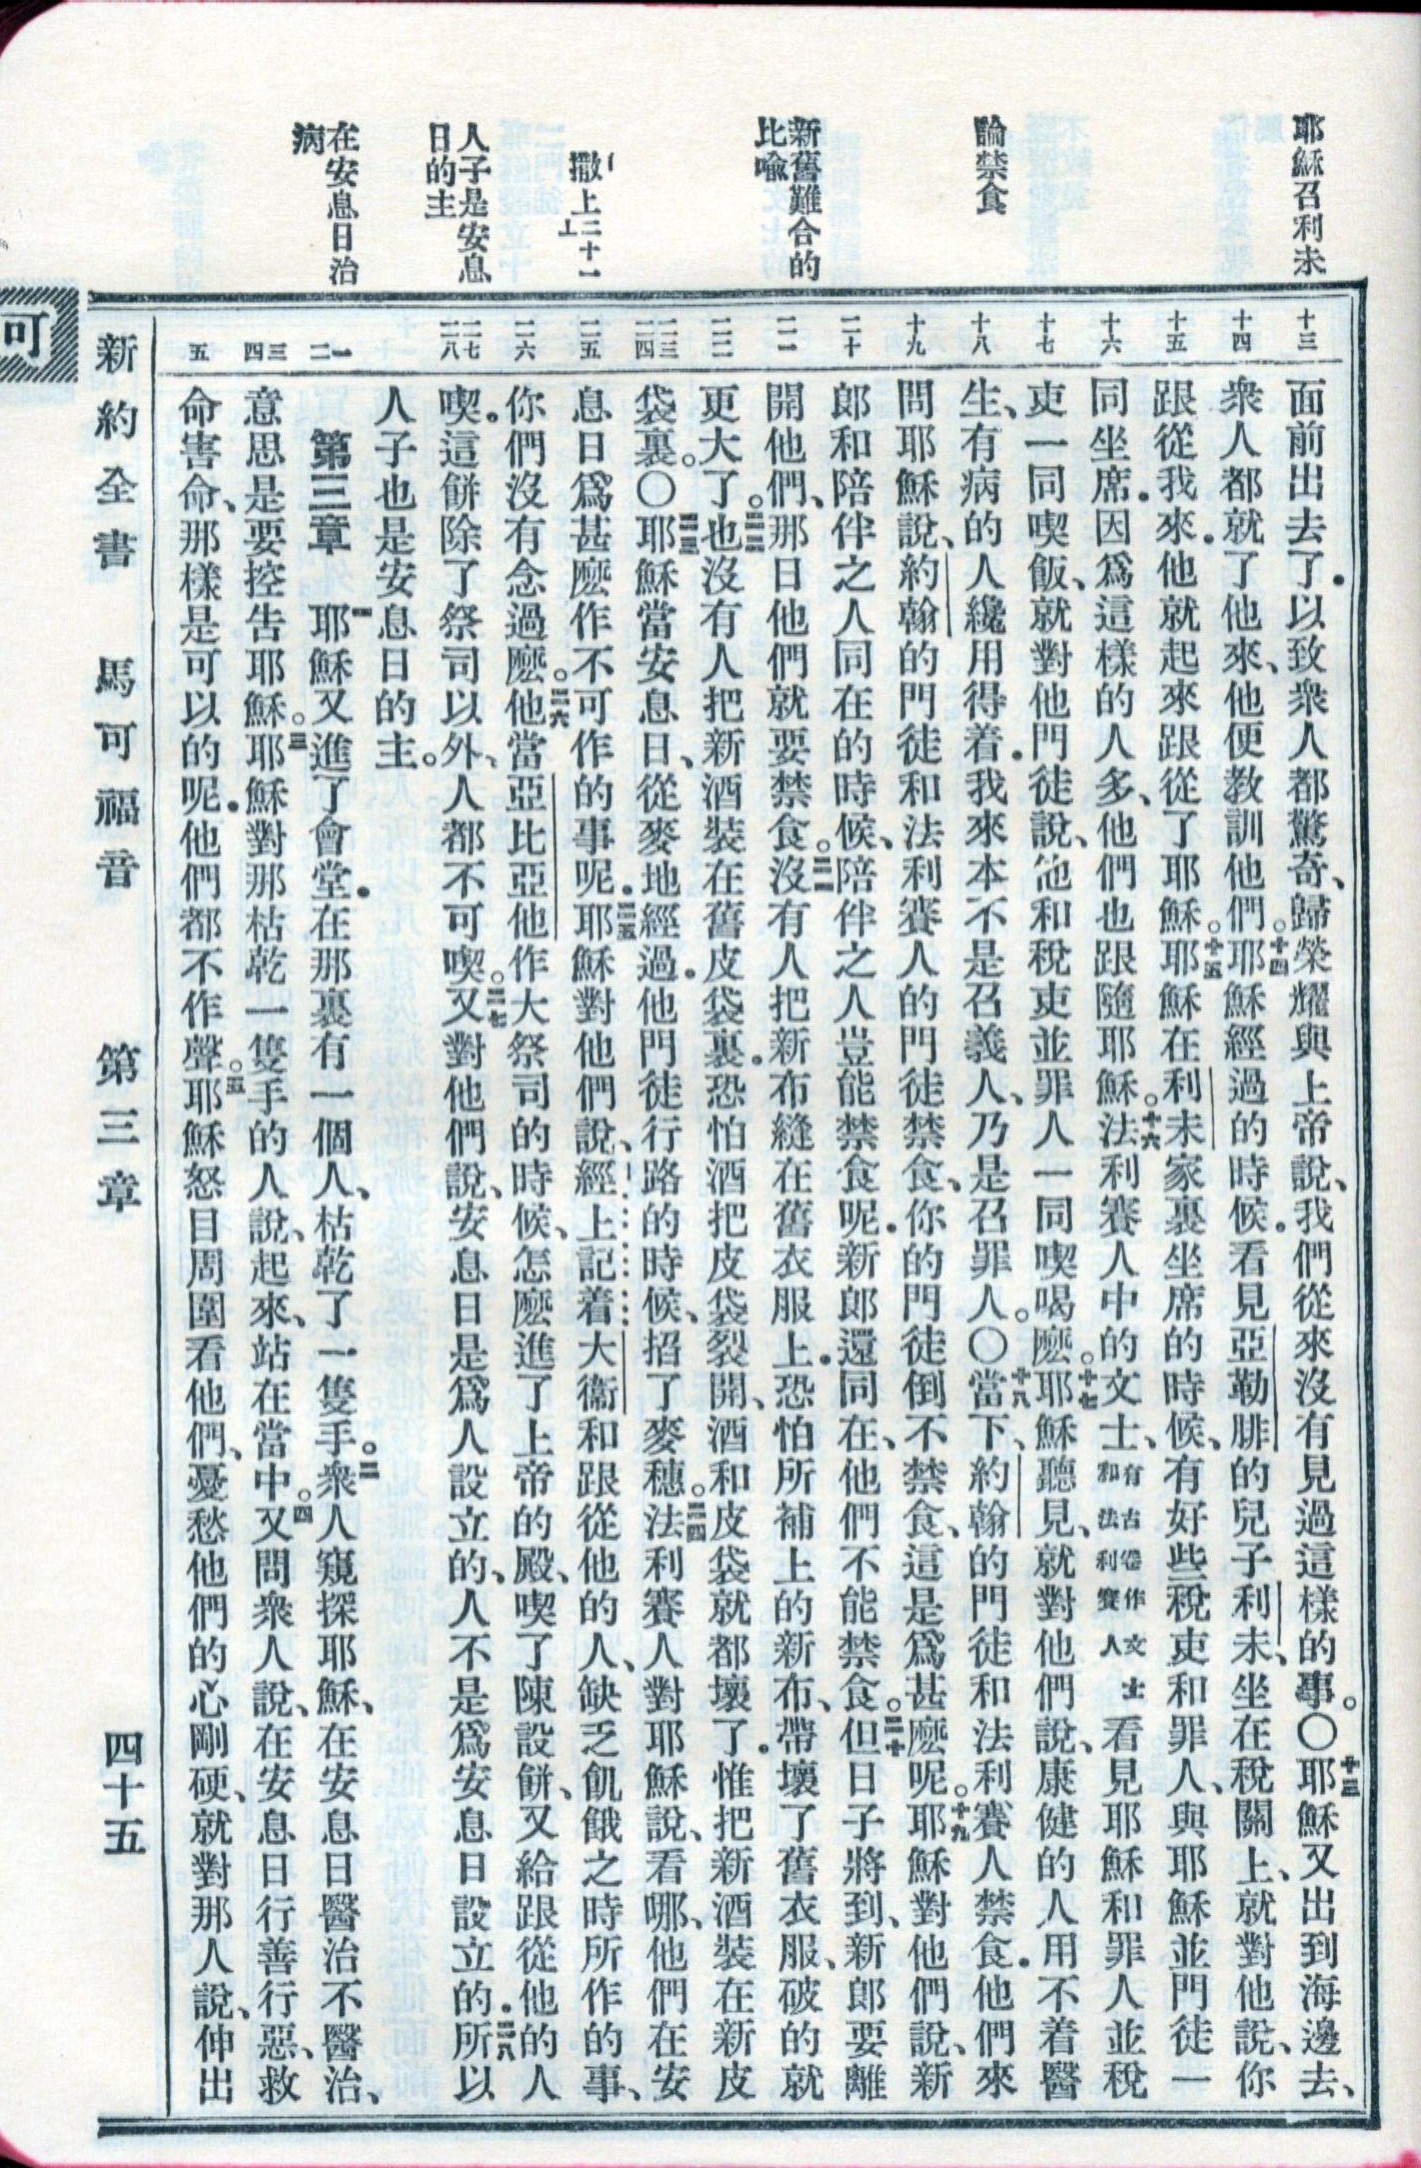 耶穌召利未
論禁食
新舊難合的
比喻
撒上二十一
人子是安息
日的主
在安息日治
病
十三
十四
十五
十六
十七
十八
十九
二十
二一
二二
二三
二四
二五
二六
二七
二八
一
二
三
四
五
面前出去了．以致衆人都驚奇、歸榮耀與上帝說、我們從來沒有見過這樣的事。〇十三耶穌又出到海邊去、
衆人都就了他來、他便教訓他們。十四耶穌經過的時候．看見亞勒腓的兒子利未、坐在稅關上、就對他說、你
跟從我來．他就起來跟從了耶穌。十五耶穌在利未家裏坐席的時候、有好些稅吏和罪人、與耶穌並門徒一
同坐席．因爲這樣的人多、他們也跟隨耶穌。十六法利賽人中的文士、有古卷作文士和法利賽人看見耶穌和罪人並稅
吏一同喫飯、就對他門徒說、他和稅吏並罪人一同喫喝麽。十七耶穌聽見、就對他們說、康健的人用不着醫
生、有病的人纔用得着．我來本不是召義人、乃是召罪人。〇十八當下、約翰的門徒和法利賽人禁食．他們來
問耶穌說、約翰的門徒和法利賽人的門徒禁食、你的門徒倒不禁食、這是爲甚麽呢。十九耶穌對他們說、新
郎和陪伴之人同在的時候、陪伴之人豈能禁食呢．新郎還同在、他們不能禁食。二十但日子將到、新郎要離
開他們、那日他們就要禁食。二一沒有人把新布縫在舊衣服上．恐怕所補上的新布、帶壞了舊衣服、破的就
更大了。二二也沒有人把新酒裝在舊皮袋裏．恐怕酒把皮袋裂開、酒和皮袋就都壞了．惟把新酒裝在新皮
袋裏。〇二三耶穌當安息日、從麥地經過．他門徒行路的時候、招了麥穗。二四法利賽人對耶穌說、看哪、他們在安
息日爲甚麽作不可作的事呢．二五耶穌對他們說、經上記着大衞和跟從他的人、缺乏飢餓之時所作的事、
你們沒有念過麽。二六他當亞比亞他作大祭司的時候、怎麽進了上帝的殿、喫了陳設餅、又給跟從他的人
喫．這餅除了祭司以外、人都不可喫。二七又對他們說、安息日是爲人設立的、人不是爲安息日設立的．二八所以
人子也是安息日的主。
第三章　一耶穌又進了會堂．在那裏有一個人、枯乾了一隻手。二衆人窺探耶穌、在安息日醫治不醫治、
意思是要控告耶穌。三耶穌對那枯乾一隻手的人說、起來、站在當中。四又問衆人說、在安息日行善行惡、救
命害命、那樣是可以的呢．他們都不作聲。五耶穌怒目周圍看他們、憂愁他們的心剛硬、就對那人說、伸出
新約全書　馬可福音　第三章　四十五
可